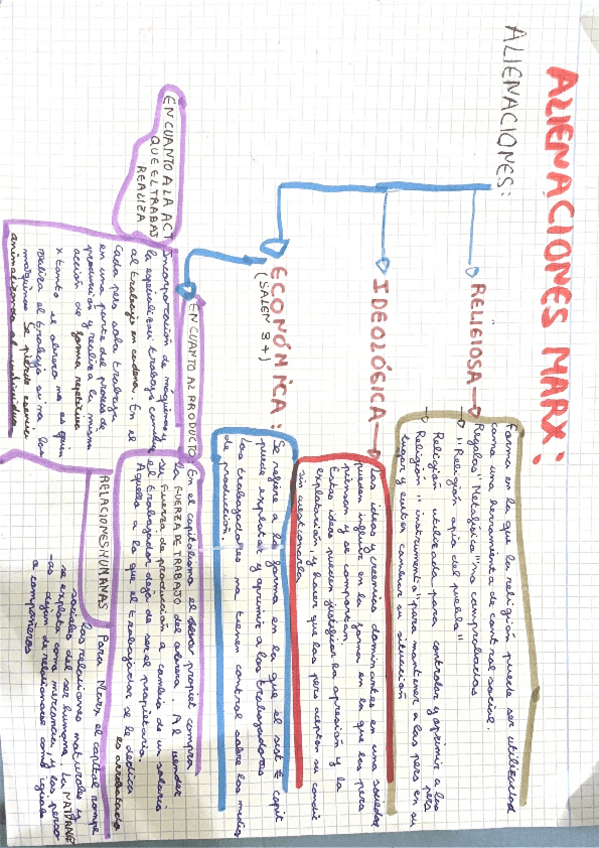 ALIENACIONES MARX:
ALIENACIONES:
RELIGIOSA
Forma en la que la religión puede ser utilizada
como una herramienta de control social.
Reglas "Metafísica" "no comprobadas
"Religión opio del pueblo"
Religión utilizada para controlar y oprimir a las pers
Religión "instrumento" para mantener a las pers en su
lugar y evitar cambiar su situación
IDEOLÓGICA
Las ideas y creencias dominantes en una sociedad
pueden influir en la forma en la que las pers
piensan y se comportan.
Estas ideas pueden justificar la opresión y la
explotación, y hacer que las pers acepten su condic
sin cuestionarla
ECONÓMICA:
(SALEN 3+)
Se refiere a la forma en la que el sist capit
puede explotar y oprimir a los trabajadores
Los trabajadores no tienen control sobre los medios
de producción.
EN CUANTO AL PRODUCTO
En el capitalismo el propiet compra
la FUERZA DE TRABAJO del obrero. Al vender
su fuerza de producción a cambio de un salario
el trabajador deja de ser el propietario.
Aquello a lo que el trabajador se le dedica
es arrebatado
EN CUANTO A LA ACT
QUE EL TRABAJ
REALIZA
Incorporación de máquinas y
la especializaci trabajo conduje
al trabajo en cadena. En el
cada pers solo trabaja
en una parte del proceso de
producción y realiza la misma
acción de forma repetitiva
x tanto el obrero no es quien
realiza el trabajo si no las
máquinas. Se pierde
animalizando al individuo
RELACIONES HUMANAS
Para Marx el capital rompe
las relaciones naturales y
sociales del ser humano. La
se explota como mercancía, y las perso
-as dejan de relacionarse como iguales
o compañeros